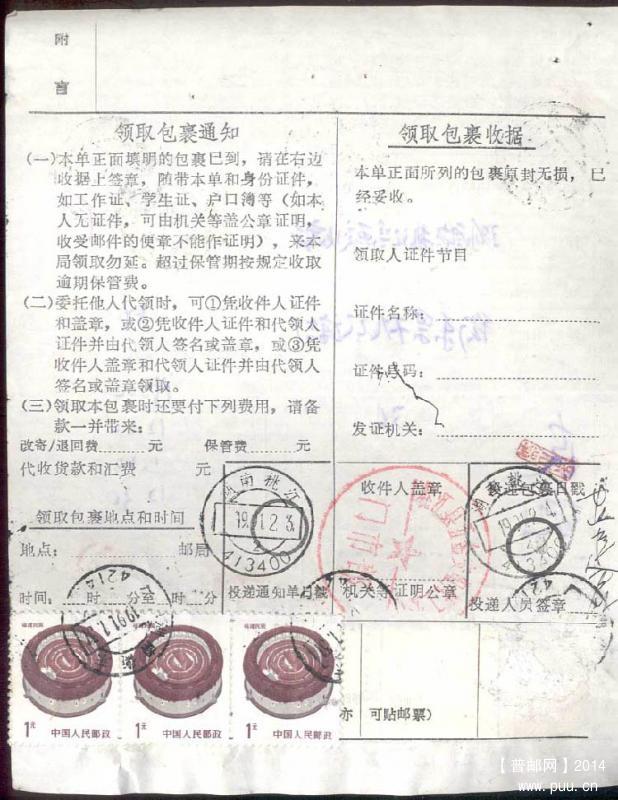 附
言
领取包裹通知
(一)本单正面填明的包裹已到，请在右边
收据上签章，随带本单和身份证件，
如工作证、学生证、户口簿等（如本
人无证件，可由机关等盖公章证明，
收受邮件的便章不能作证明），来本
局领取勿延。超过保管期按规定收取
逾期保管费。
(二)委托他人代领时，可①凭收件人证件
和盖章，或②凭收件人证件和代领人
证件并由代领人签名或盖章，或③凭
收件人盖章和代领人证件并由代领人
签名或盖章领取。
(三)领取本包裹时还要付下列费用，请备
款一并带来：
改寄/退回费 元 保管费 元
代收货款和汇费 元
领取包裹地点和时间
地点： 邮局
时间： 时 分至 时 分
领取包裹收据
本单正面所列的包裹原封无损，已
经妥收。
领取人证件节目
证件名称：
证件号码：
发证机关：
湖南桃江
413400
投递通知单日戳
收件人盖章
机关等证明公章
投递包裹日戳
投递人员签章
亦可贴邮票）
福建民居
1元 中国人民邮政
福建民居
1元 中国人民邮政
福建民居
1元 中国人民邮政
【普邮网】2014
www.puu.cn